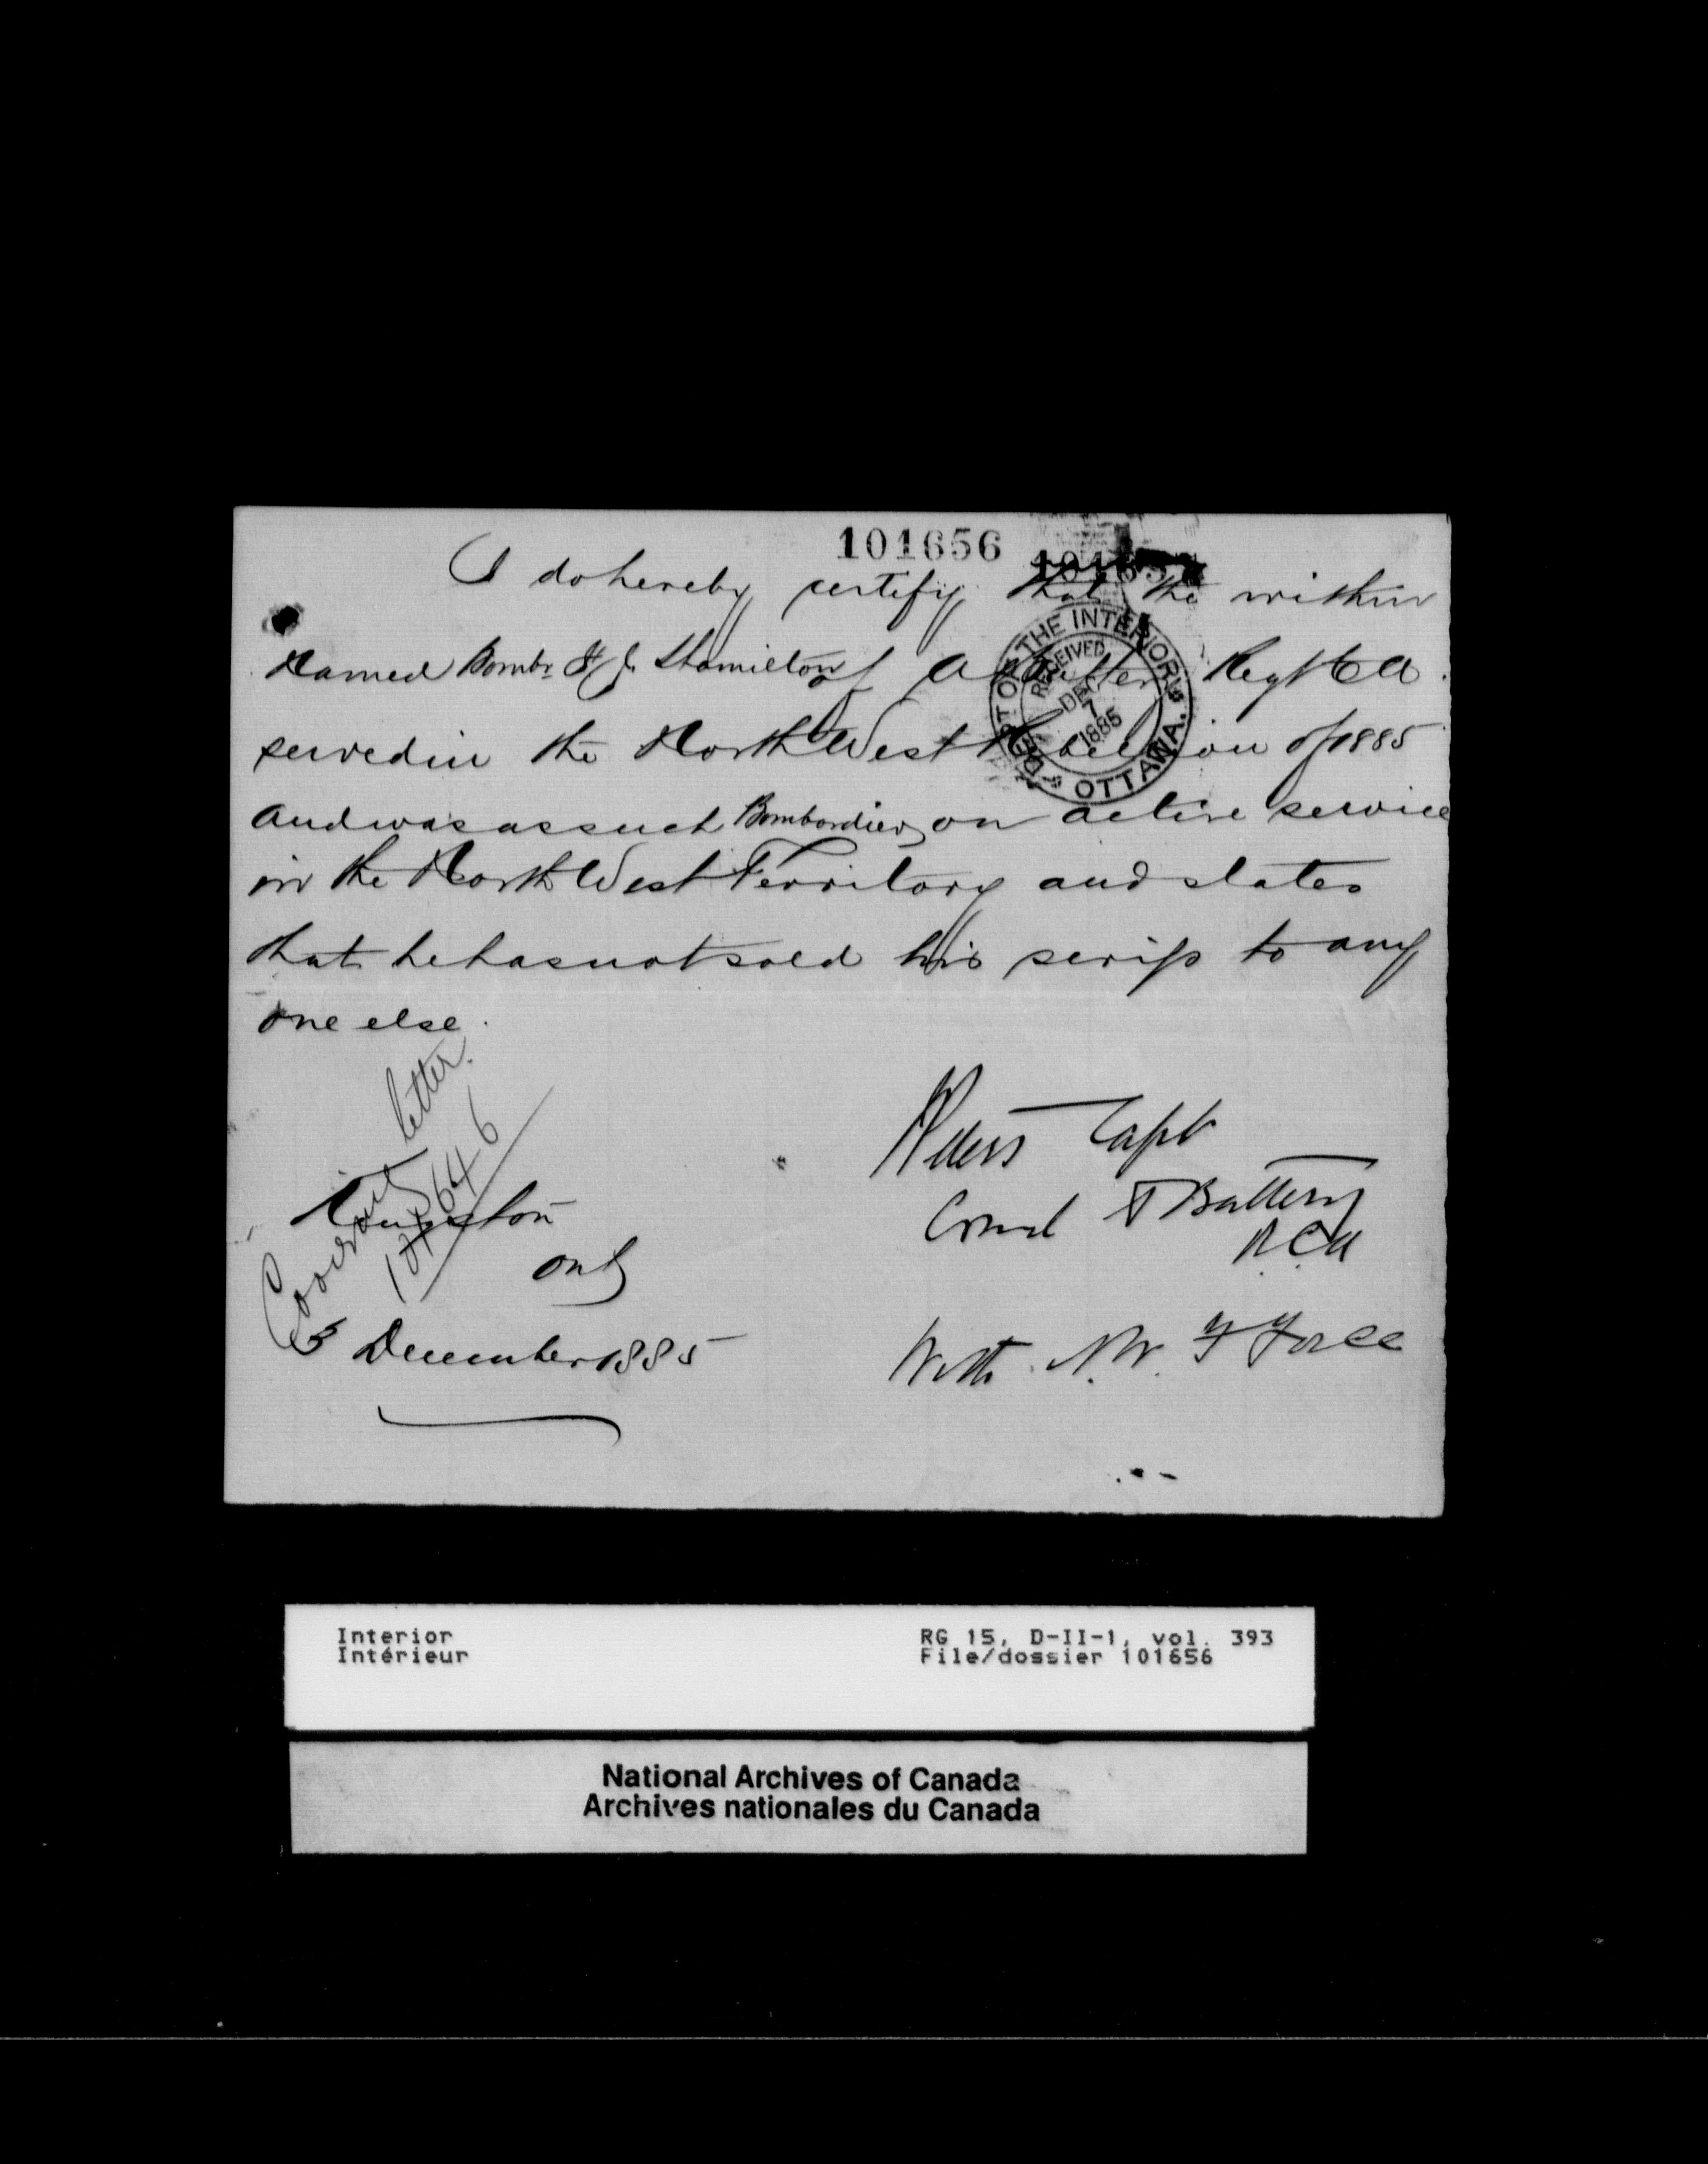 101656
I do hereby certify that the within
Named Bombr H J Hamilton of A Battery Regt C A.
served in the North West Rebellion of 1885
and was as such Bombardier on active service
in the North West Territory and states
that he has not sold his scrip to any
one else.
DEPT OF THE INTERIOR
RECEIVED
DEC
7
1885
OTTAWA.
Covering letter.
101646
Kingston
Ont
3 December 1885
Capt
Comd A Battery
R.C.A
With N.W. F Force
Interior
Intérieur
RG 15, D-II-1, vol. 393
File/dossier 101656
National Archives of Canada
Archives nationales du Canada